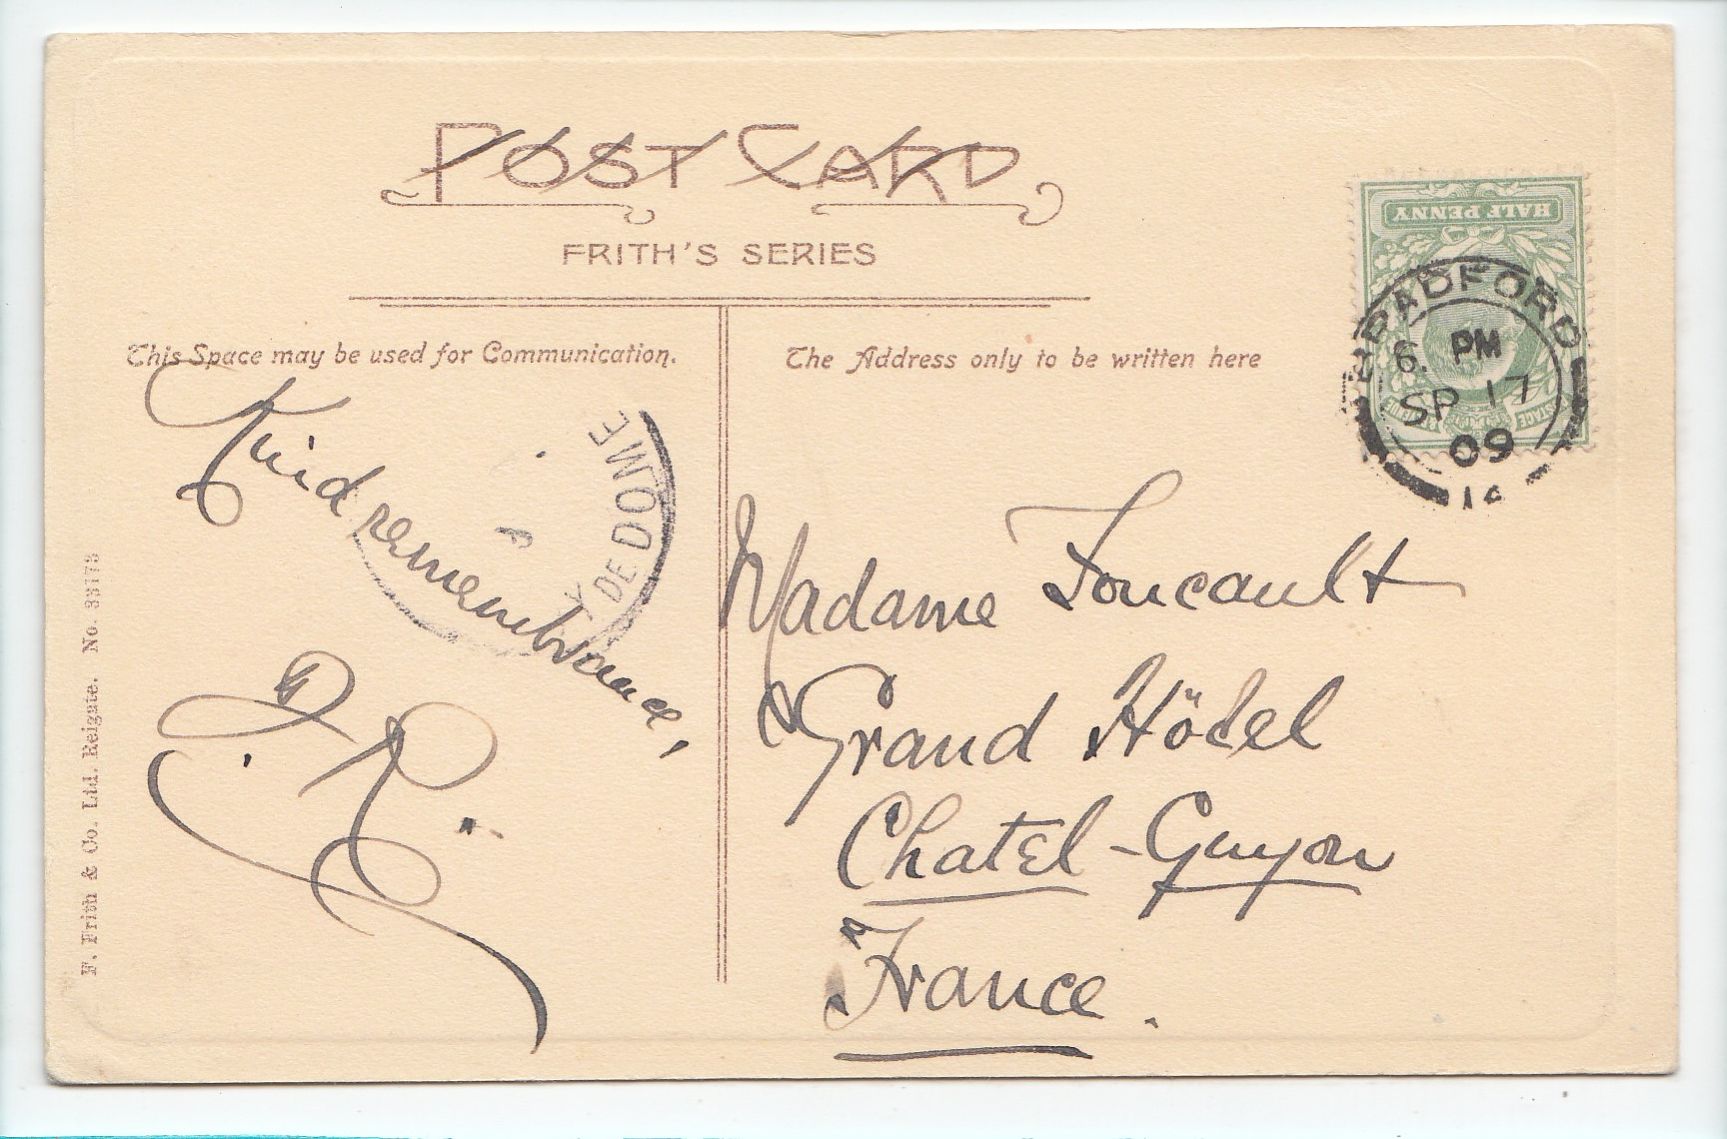 POST CARD
FRITH'S SERIES
This Space may be used for Communication.
The Address only to be written here
HALF PENNY
BRADFORD
6. PM
SP 17
09
DE DOME
Kind remembrance,
Madame Foucault
Grand Hôtel
Chatel-Guyon
France.
F. Frith & Co. Ltd. Reigate. No. 33173